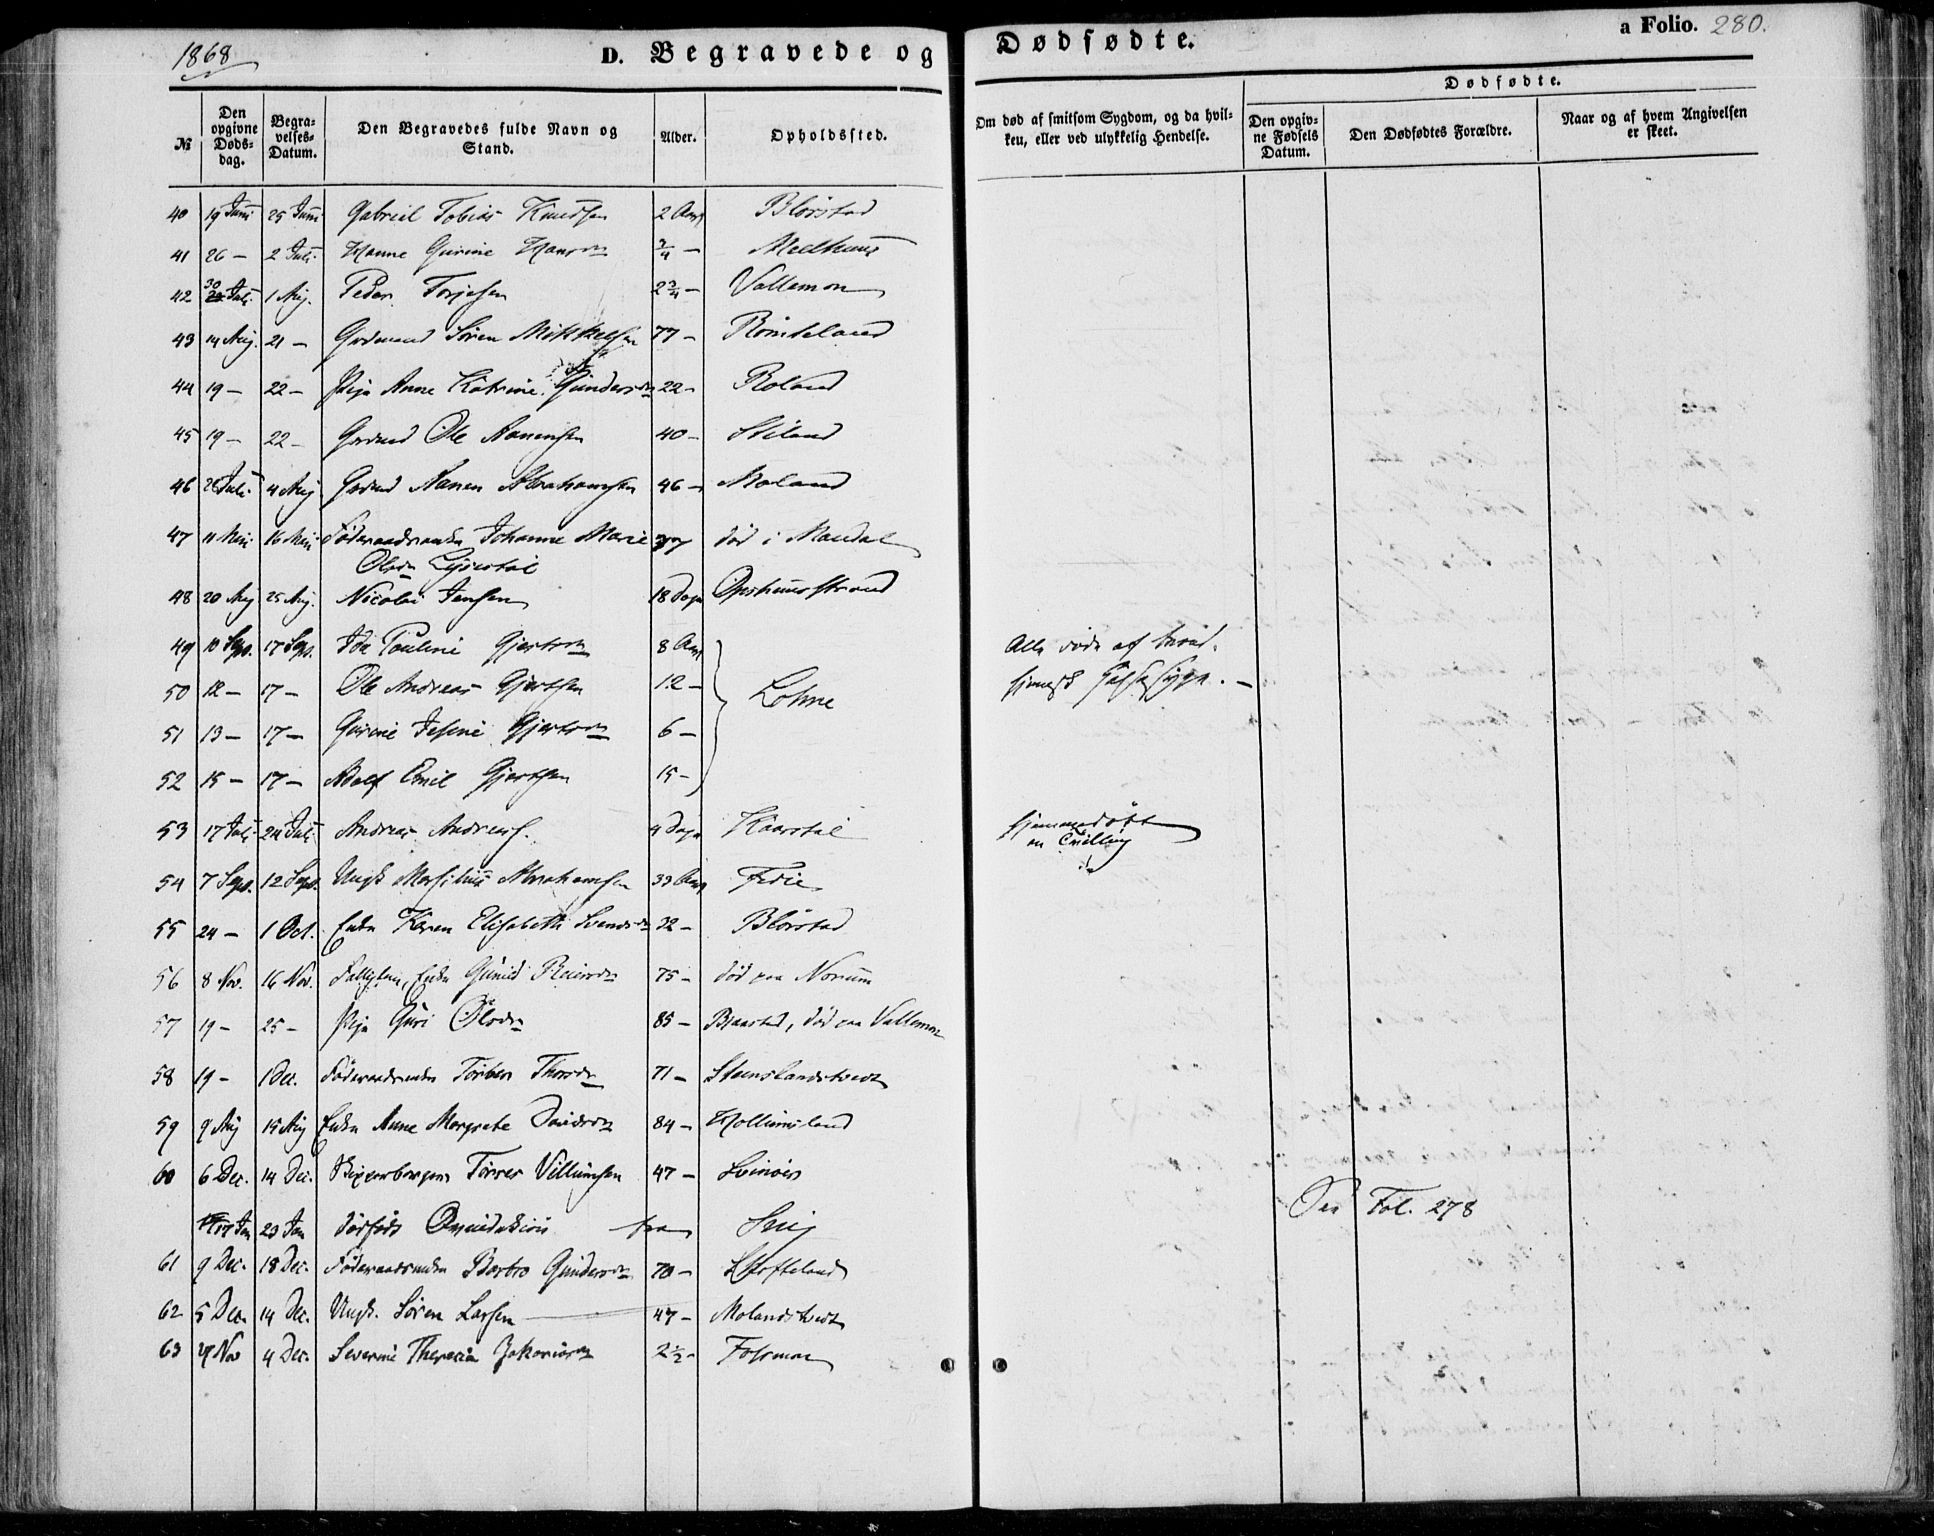 1868
D. Begravede og Dødfødte.
a Folio. 280.
№
Den opgivne Døds-dag.
Begra-velses-Datum.
Den Begravedes fulde Navn og Stand.
Alder.
Opholdssted.
Om død af smitsom Sygdom, og da hvil-ken, eller ved ulykkelig Hendelse.
Dødfødte.
Den opgiv-ne Fødsels Datum.
Den Dødfødtes Forældre.
Naar og af hvem Angivelsen er skeet.
40 19 Juni 25 Juni Gabriel Tobias Knudsen 2 Aar Blørstad
41 26 – 2 Juli Hanne Gurine Hansdn 3/4 – Meelhuus
42 30 Juli 1 Aug. Peder Torjesen 2 3/4 – Vallemon
43 14 Aug. 21 – Gaardmand Søren Mikkelsen 77 – Rømteland
44 19 – 22 – Pige Anne Katrine Gundersdn 22 – Roland
45 19 – 22 – Gaardmd Ole Aanensen 40 – Stiland
46 28 Juli 4 Aug Gaardmd Aanen Abrahamsen 46 – Moland
47 11 Mai 16 Mai Føderaadsenke Johanne Marie 77 død i Mandal
Olsdn Lyjerstøl
48 20 Aug 25 Aug. Nicolai Jensen 18 Dage Opshuusstrand
49 10 Sept. 17 Sept. Ida Pauline Gjertsdn 8 Aar Alle døde af
50 12 – 17 – Ole Andreas Gjertsen 12 – Lohne
51 13 – 17 – Gurine Jesine Gjertsdn 6 –
52 15 – 17 – Adolf Emil Gjertsen 15 –
53 17 Juli 24 Juli Andreas Andreass. 4 Dage Kaarstøl hjemmedøbt
en Tvilling
54 7 Sept. 12 Sept. Ungk Marsilius Abrahamsen 33 Aar Fedie
55 24 – 1 Oct. Enke Karen Elisabeth Svendsdn 32 – Blørstad
56 8 Nov. 16 Nov. Fattiglem, Enke Gunild Reiersdn 75 – død paa Norum
57 19 – 25 – Pige Guri Olsdn 85 – Bjaastad, død paa Vallemon
58 19 – 1 Dec. Føderaadsenke Torber Thorsdn 71 – Steenslandstvedt
59 9 Aug 15 Aug Enke Anne Margrete Davidsdn 84 – Hollumsland
60 6 Dec. 14 Dec. Skipperborger Tørres Villumsen 47 – Svinøer
17 Jan 23 Jan dødfødt fra Snig See Fol. 278
61 9 Dec. 18 Dec. Føderaadsenke Barbro Gundersdn 70 – Skofteland
62 5 Dec. 14 Dec. Ungk. Søren Larsen 47 – Molandstvedt
63 27 Nov 4 Dec. Severine Theresia Zakariasdn 2 1/2 – Fosmon